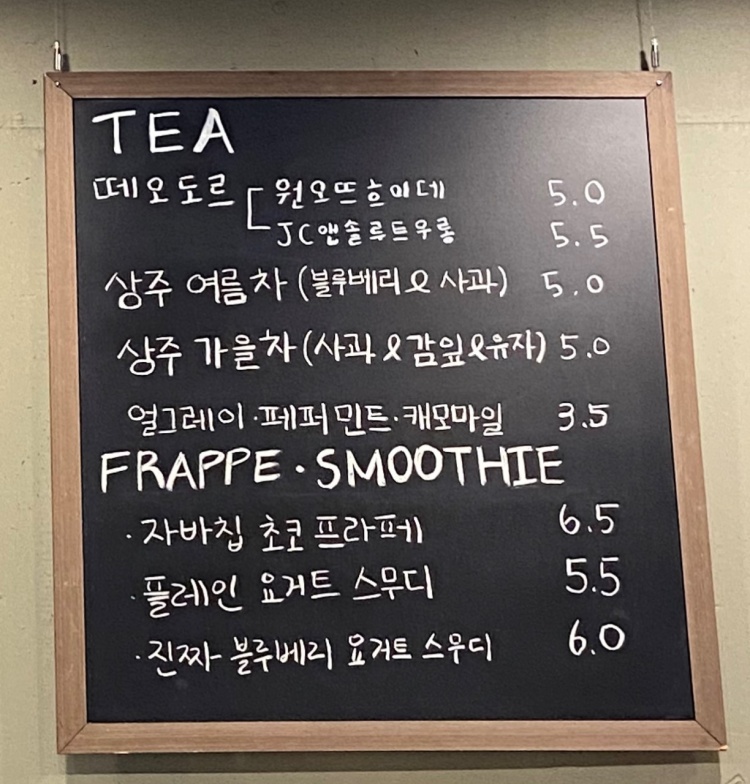 TEA
떼오도르 원오뜨흐이데 5.0
JC앤솔루트우롱 5.5
상주 여름차 (블루베리 & 사과) 5.0
상주 가을차 (사과 & 감잎 & 유자) 5.0
얼그레이·페퍼민트·캐모마일 3.5
FRAPPE·SMOOTHIE
·자바칩 초코 프라페 6.5
·플레인 요거트 스무디 5.5
·진짜 블루베리 요거트 스무디 6.0